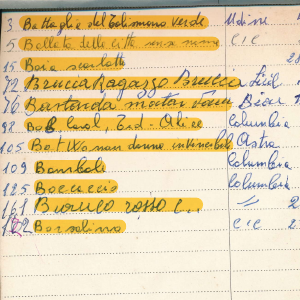 3 Battaglia del Talismano verde Udine
5 Ballata della città senza nome CIC
15 Baia scarlatta 28
72 Brucia Ragazzo Brucia
76 Bastardo vamos Dear
98 Bob, Carol, Ted. Alice Columbia
105 Bo. t. W.8 man donna invincibile Astra
109 Bambole Columbia
125 Boccaccio Columbia
161 Bianco rosso e.. " 2
182 Borsalino CIC 2